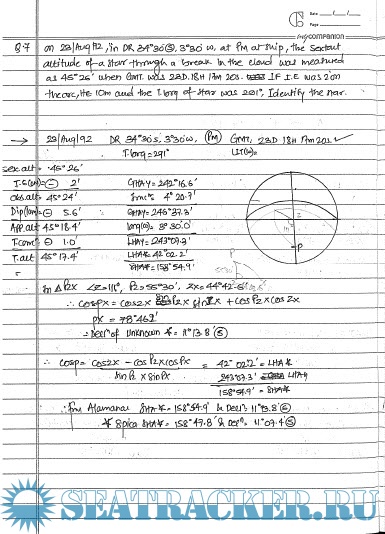 Date ___/___/___
Page
my companion
Q.7 on 23/Aug/92, in DR 34°30'Ⓢ, 3°30'W, at PM at ship, the Sextant
altitude of a star through a break in the cloud was measured
as 45°26' when GMT was 23D. 18H 17m 20s. IF I.E was 2'on
the arc, He 10m and the T.brg of star was 291°, Identify the star.
→ 23/Aug/92 DR 34°30's, 3°30'W, (PM) GMT, 23D 18H 17m 20s
T.brg = 291°
Sex.alt = 45°26'
I.E(on) = ⊖ 2' GHAγ = 242°16.6'
Obs.alt = 45°24' Incr = 4°20.7'
Dip(10m) = ⊖ 5.6' GHAγ = 246°37.3'
App.alt 45°18.4' long(W) = 3°30.0'
T.corrⁿ ⊖ 1.0' LHAγ = 243°07.3'
T.alt 45°17.4' LHA* = 42°02.2'
SHA* = 158°54.9'
P
In Δ PZX ∠Z = 111°, PZ = 55°30', ZX = 44°42.6'
∴ cos PX = cos Z x sin PZ x sin ZX + cos PZ x cos ZX
PX = 78°46.2'
∴ Declⁿ of Unknown * = 11°13.8' Ⓢ
∴ cos P = cos ZX - cos PZ x cos PX = 42°02.2' = LHA*
sin PZ x sin PX 243°07.3' LHAγ
158°54.9' = SHA*
∴ From Alamanac SHA* = 158°54.9' & Declⁿ 11°13.8' Ⓢ
* Spica SHA* = 158°47.8' & Declⁿ 11°07.4' Ⓢ
SEATRACKER.RU